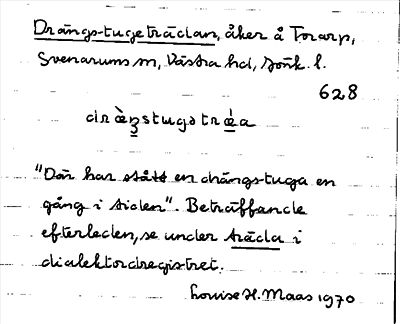 Drängs-tugeträdan, åker å Torarp,
Svenarums sn, Västra hd, Jönk. l.
628
dràŋstugətrǽa
"Där har stått en drängs-tuga en
gång i tiden". Beträffande
efterleden, se under träda i
dialektordregistret.
Louise H. Maas 1970